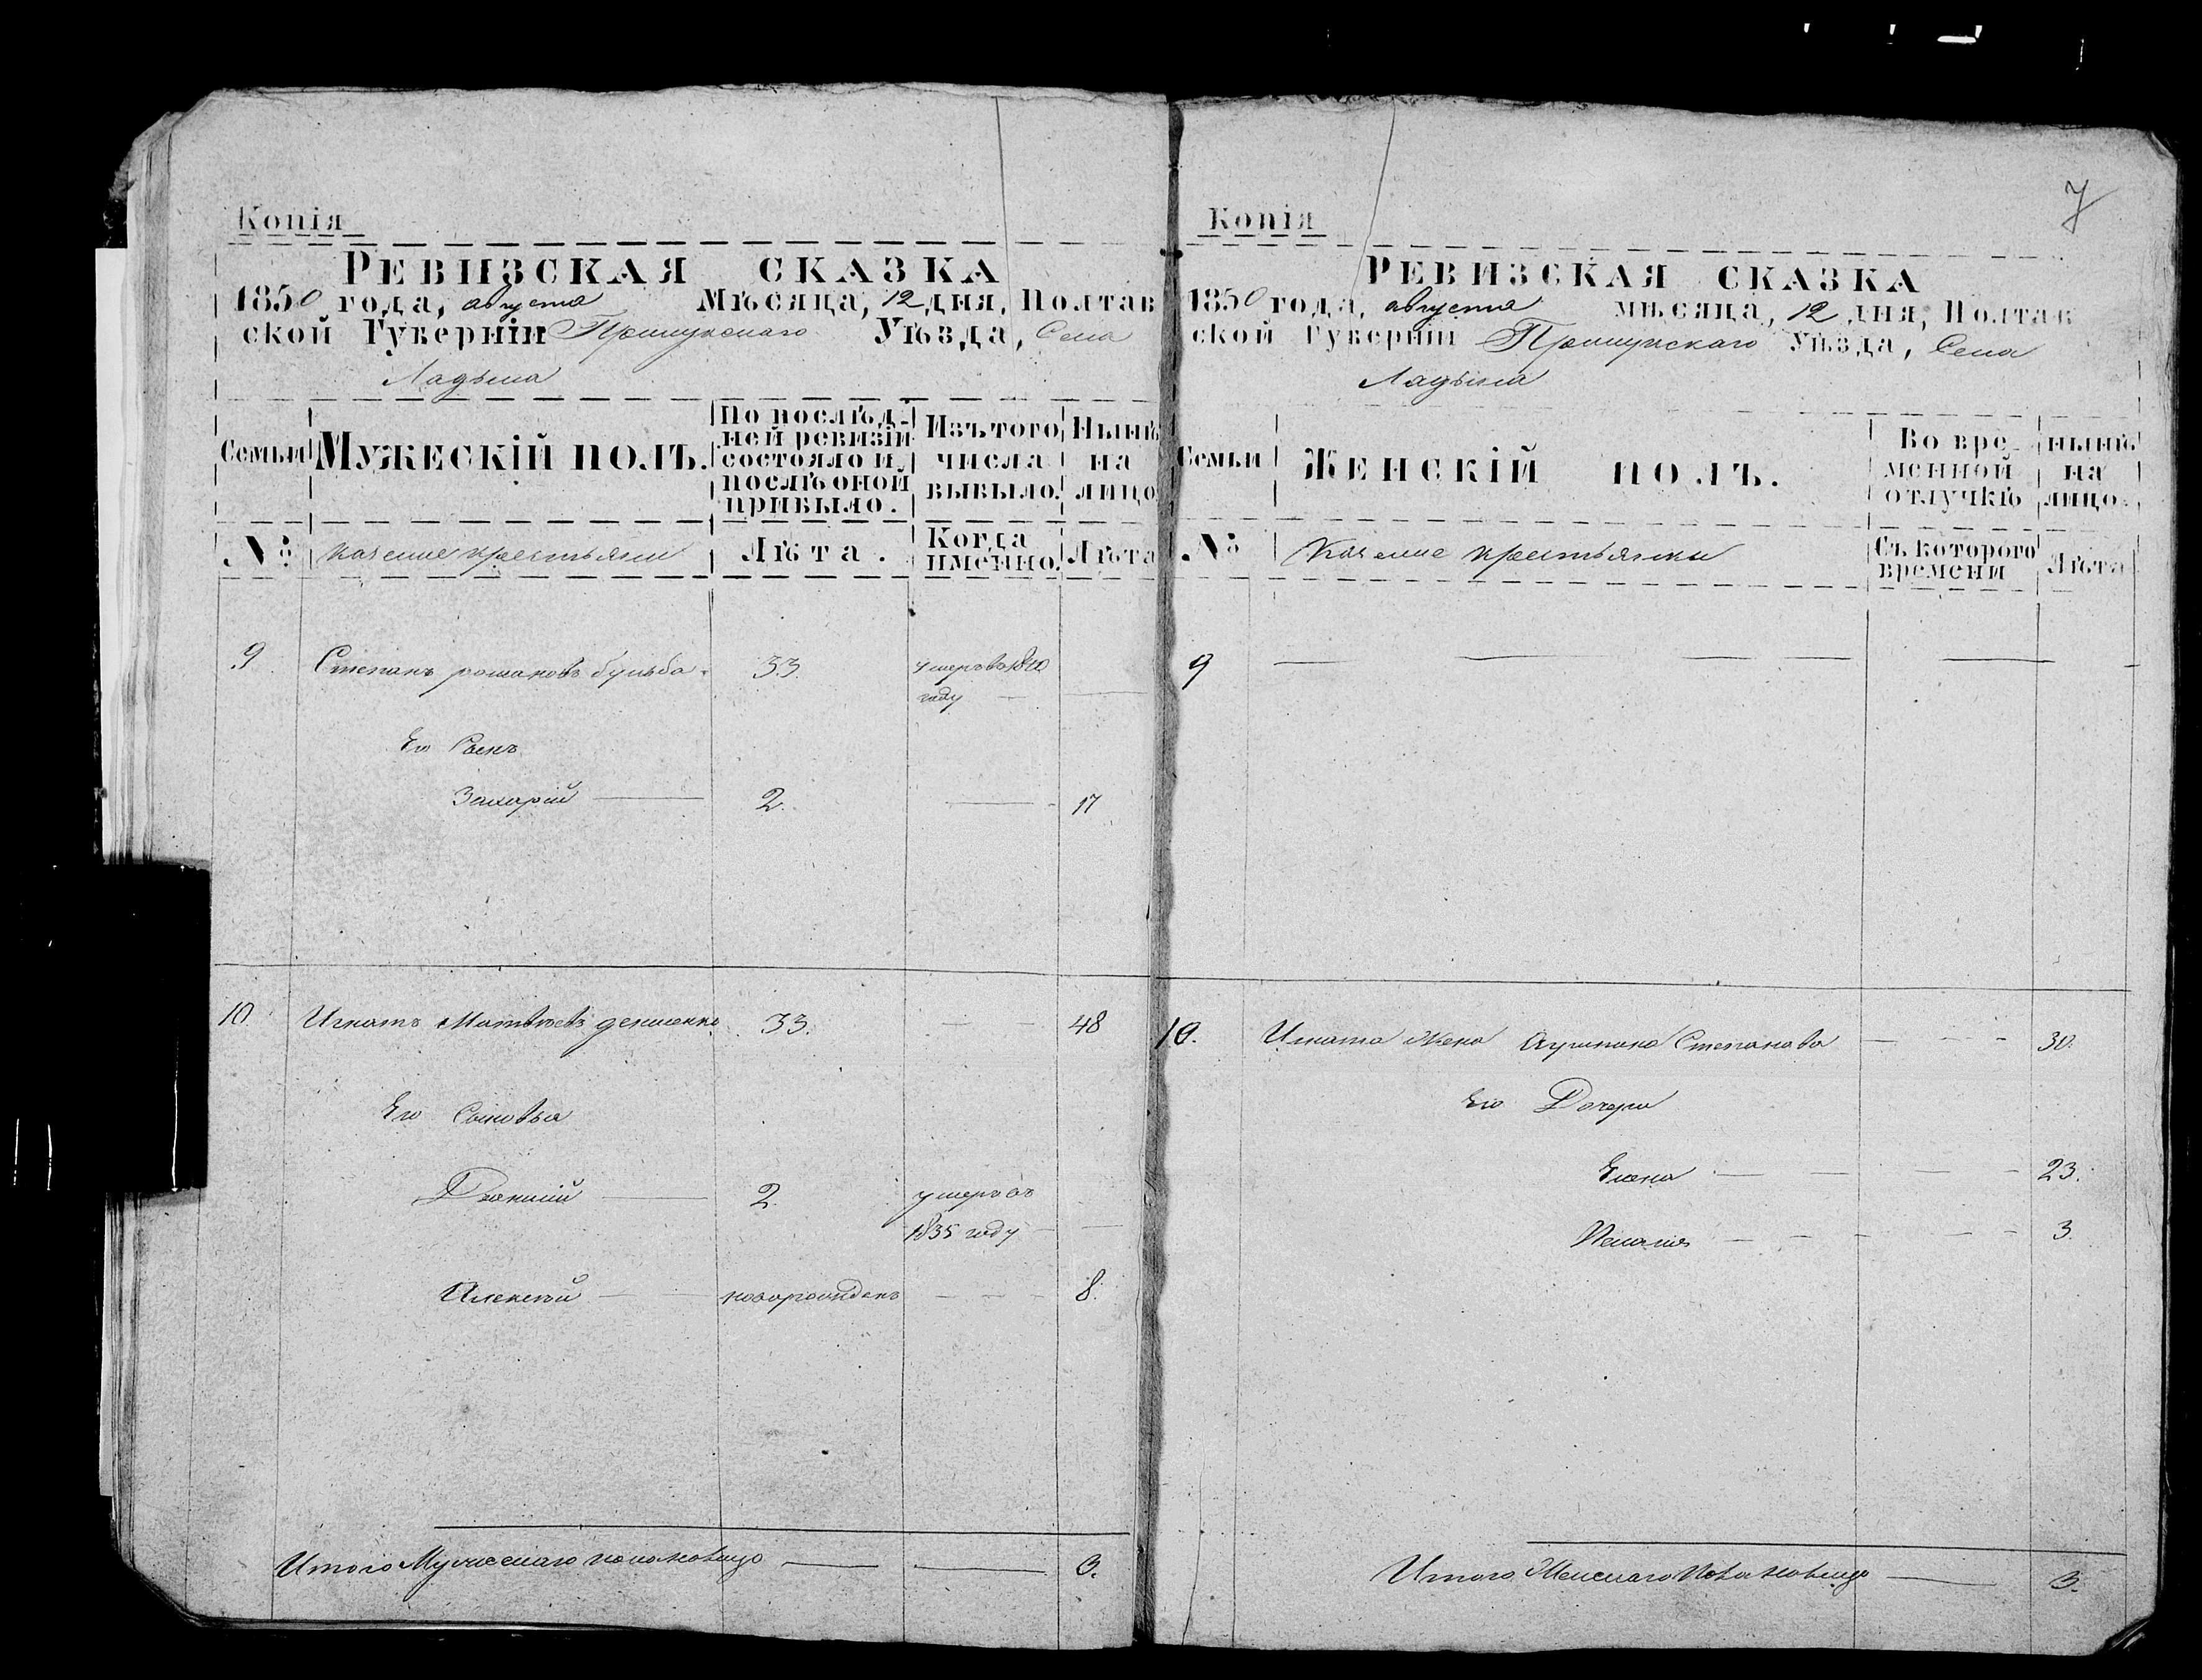 Копія
РЕВИЗСКАЯ СКАЗКА
1850 года, августа Мѣсяца, 12 дня, Полтав
ской Губерніи Прилукскаго Уѣзда, Села
Ладына
Семьи
МУЖЕСКІЙ ПОЛЪ.
По послѣд-
ней ревизіи
состояло и
послѣ оной
прибыло.
Изъ того
числа
выбыло.
Нынѣ
на
лицо
№
казенные крестьяне
Лѣта.
Когда
именно.
Лѣта
9 Степанъ романовъ бульба 33. умеръ въ 1840
году
Его Сынъ
Захарій 2. 17
10 Игнатъ Матвѣевъ 33. 48
Его Сыновья
2. умеръ въ
1835 году
Алексѣй новорожденъ 8.
Итого Мужескаго пола наличо 3.
7
Копія
РЕВИЗСКАЯ СКАЗКА
1850 года, августа мѣсяца, 12 дня, Полтав
ской Губерніи Прилукскаго Уѣзда, Села
Ладына
Семьи
ЖЕНСКІЙ ПОЛЪ.
Во вре
менной
отлучкѣ
нынѣ
на
лицо.
№
Казенные крестьянки
Съ котораго
времени
Лѣта
9
10. Игната Жена Степанова 30.
Его Дочери
Елена 23.
3.
Итого Женскаго Пола наличо 3.